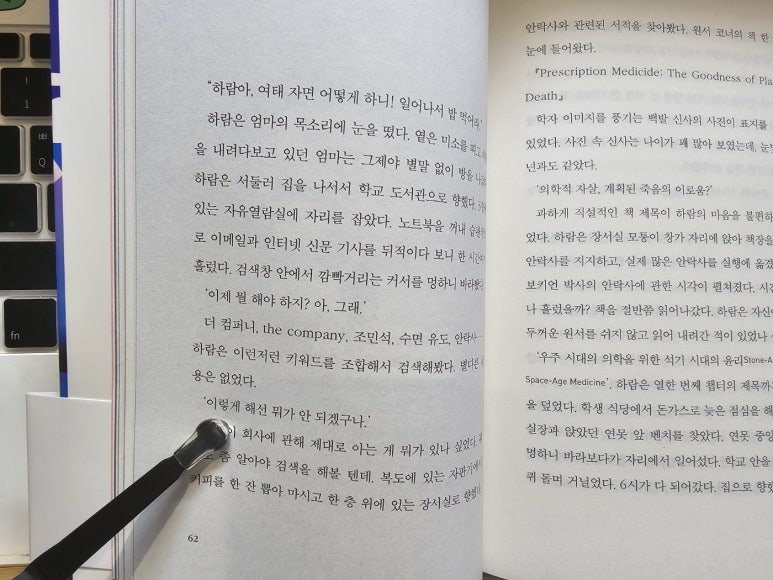 “하람아, 여태 자면 어떻게 하니! 일어나서 밥 먹어라.”
하람은 엄마의 목소리에 눈을 떴다. 옅은 미소를 띠고
을 내려다보고 있던 엄마는 그제야 별말 없이 방을
하람은 서둘러 집을 나서서 학교 도서관으로 향했다.
있는 자유열람실에 자리를 잡았다. 노트북을 꺼내
로 이메일과 인터넷 신문 기사를 뒤적이다 보니 한 시간이
흘렀다. 검색창 안에서 깜빡거리는 커서를 멍하니 바라봤다.
‘이제 뭘 해야 하지? 아, 그래.’
더 컴퍼니, the company, 조민석, 수면 유도, 안락사…
하람은 이런저런 키워드를 조합해서 검색해봤다. 별다른
용은 없었다.
‘이렇게 해선 뭐가 안 되겠구나.’
이 회사에 관해 제대로 아는 게 뭐가 있나 싶었다.
좀 알아야 검색을 해볼 텐데. 복도에 있는 자판기에서
커피를 한 잔 뽑아 마시고 한 층 위에 있는 장서실로 향했다.
62
안락사와 관련된 서적을 찾아봤다. 원서 코너의 책 한
눈에 들어왔다.
『Prescription Medicide: The Goodness of
Death』
학자 이미지를 풍기는 백발 신사의 사진이 표지를
있었다. 사진 속 신사는 나이가 꽤 많아 보였는데,
년과도 같았다.
‘의학적 자살, 계획된 죽음의 이로움?’
과하게 직설적인 책 제목이 하람의 마음을
었다. 하람은 장서실 모퉁이 창가 자리에 앉아 책장을
안락사를 지지하고, 실제 많은 안락사를 실행에
보키언 박사의 안락사에 관한 시각이 펼쳐졌다.
나 흘렀을까? 책을 절반쯤 읽어나갔다. 하람은
두꺼운 원서를 쉬지 않고 읽어 내려간 적이 있었나
‘우주 시대의 의학을 위한 석기 시대의 윤리
Space-Age Medicine’. 하람은 열한 번째 챕터의 제목까지
을 덮었다. 학생 식당에서 돈가스로 늦은 점심을
실장과 앉았던 연못 앞 벤치를 찾았다. 연못
멍하니 바라보다가 자리에서 일어섰다. 학교 안을
퀴 돌며 거닐었다. 6시가 다 되어갔다. 집으로
fn